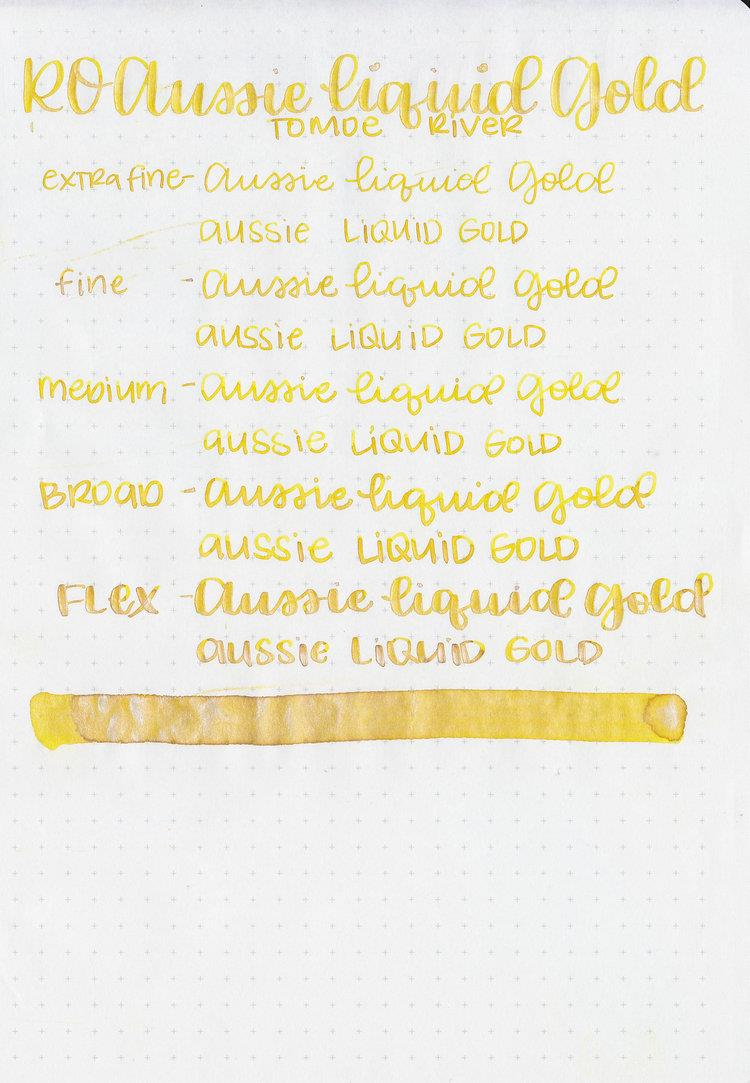 RO Aussie liquid Gold
TOMOE RIVER
extra fine - aussie liquid Gold
aussie LIQUID GOLD
fine - aussie liquid gold
aussie LIQUID GOLD
medium - aussie liquid gold
aussie LIQUID GOLD
BROAD - aussie liquid gold
aussie LIQUID GOLD
FLEX - aussie liquid gold
aussie LIQUID GOLD